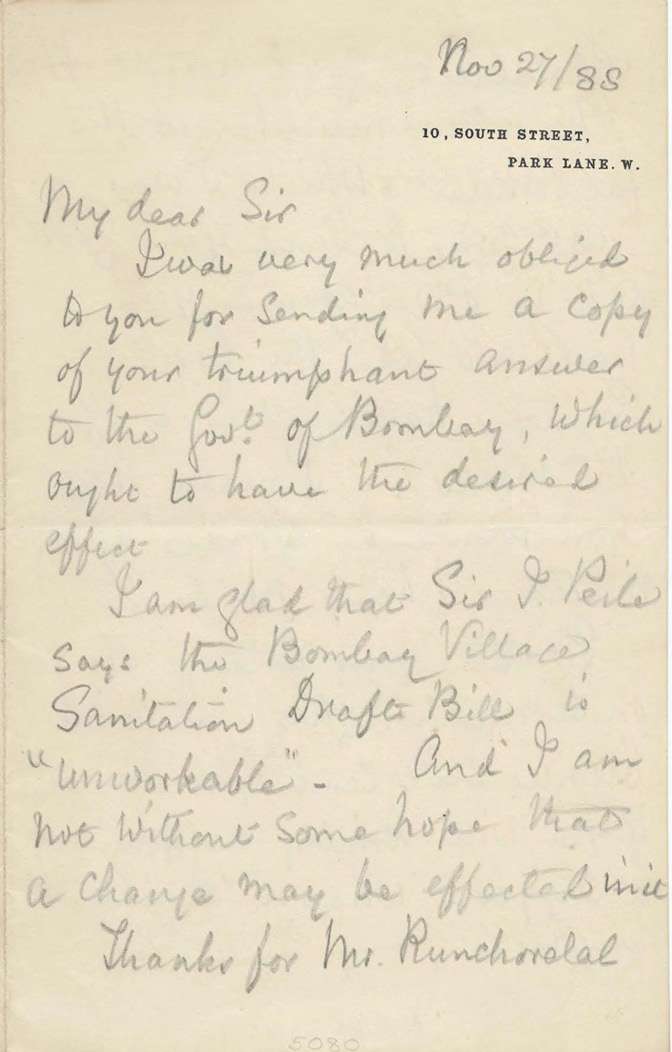 Nov 27/88
10, SOUTH STREET,
PARK LANE. W.
My dear Sir
I was very much obliged
to you for sending me a copy
of your triumphant answer
to the Govt. of Bombay, which
ought to have the desired
effect
I am glad that Sir J. Peile
says the Bombay Village
Sanitation Draft Bill is
"unworkable" - And I am
not without some hope that
a change may be effected in it
Thanks for Mr. Runchorelal
5080